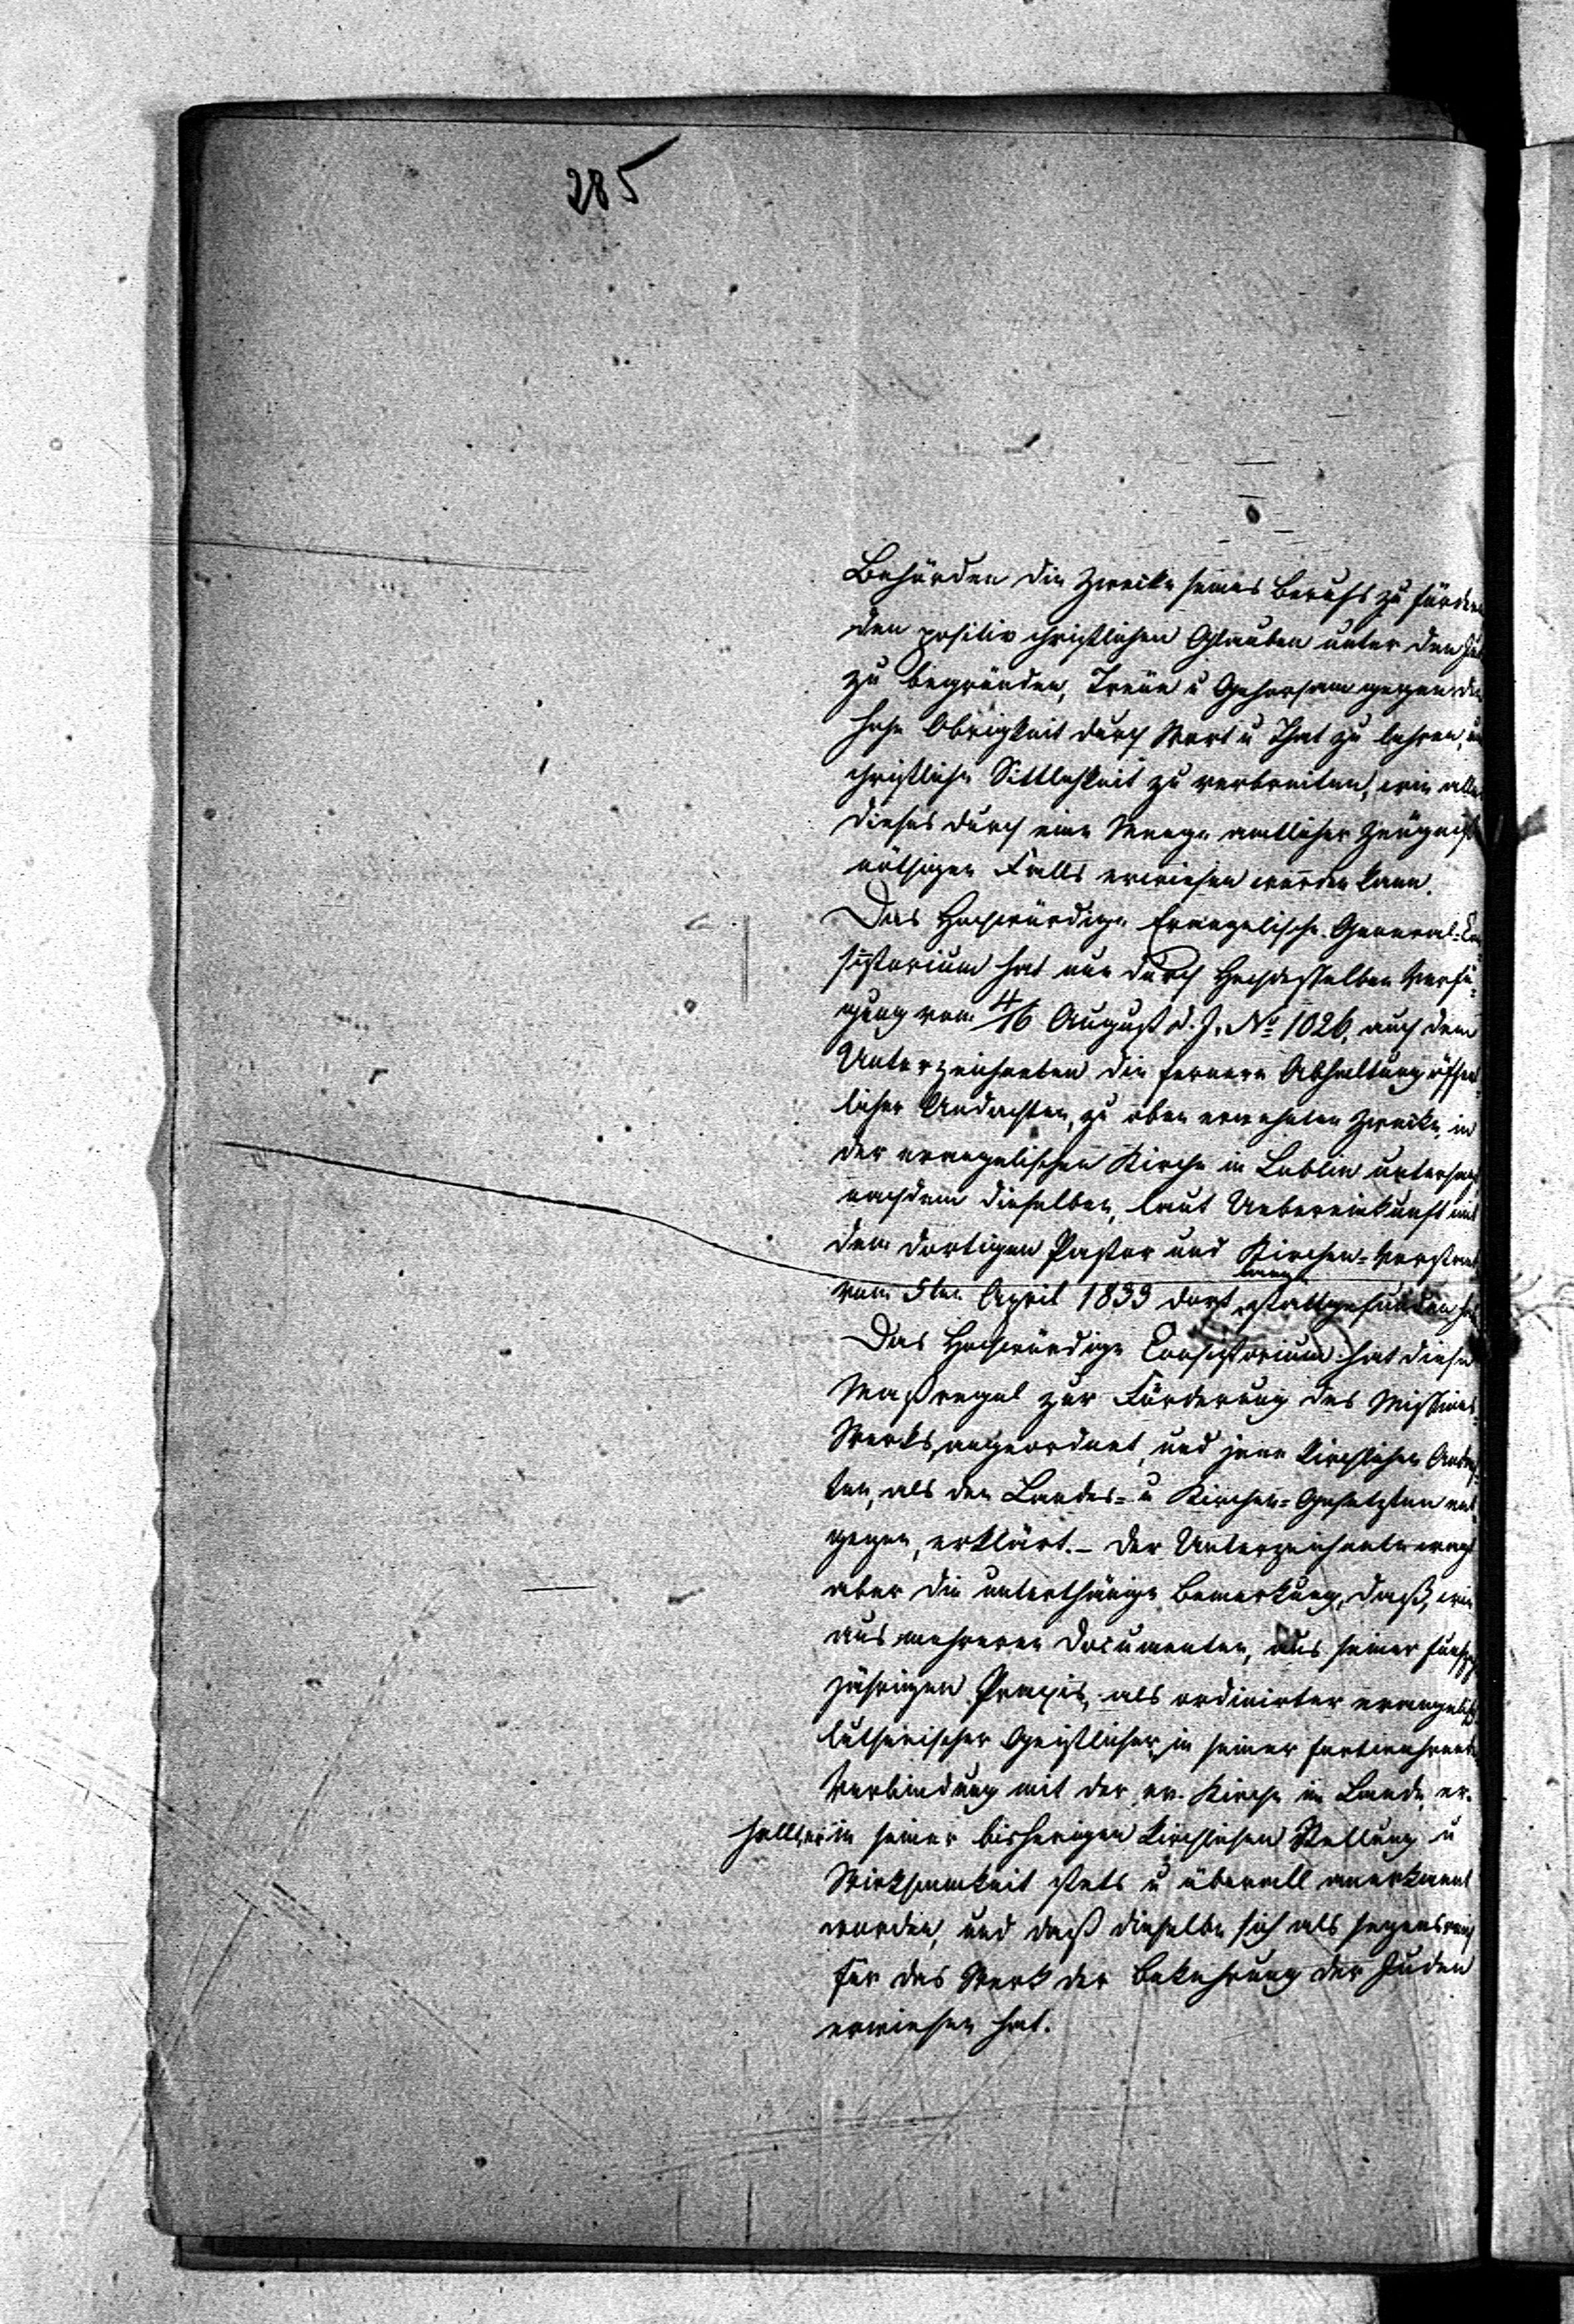 285
Behörden die Zwecke seines Berufs zu fördern
den positiv christlichen Glauben unter den
zu begründen, Treue u Gehorsam gegen die
hohe Obrigkeit durch Wort u That zu lehren, u
christliche Sittlichkeit zu verbreiten, wie alles
dieses durch eine Menge amtlicher Zeugniße
nöthigen Falls erwiesen werden kann.
Das Hochwürdige Evangelische General=Con
sistorium hat nun durch Hochdesselben Verfü=
gung vom 4/16 August d. J. No 1026, auch dem
Unterzeichneten die fernere Abhaltung öffent
licher Andachten, zu oben erwehnten Zwecke, in
der evangelischen Kirche in Lublin untersagt,
nachdem dieselben, laut Uebereinkunft mit
dem dortigen Pastor und Kirchen=Vorstand
vom 5ten April 1833 dort stattgefunden
Das Hochwürdige Consistorium hat diese
Maßregel zur Förderung des Missions=
Werks, angeordnet, und jene kirchlichen Andach=
ten, als den Landes= u Kirchen=Gesetzten ent
gegen, erklärt. – Der Unterzeichnete wagt
aber die unterthänige Bemerkung, daß, wie
aus mehreren Documenten, aus seiner
jährigen Praxis, als ordinirter evangelisch
lutherischer Geistlicher, in seiner fortwährenden
Verbindung mit der ev. Kirche im Lande, er=
hellt, er in seiner bisherigen kirchlichen Stellung u
Wirksamkeit stets u überall anerkannt
worden, und daß dieselbe sich als segensreich
für das Werk der Bekehrung der Juden
erwiesen hat.